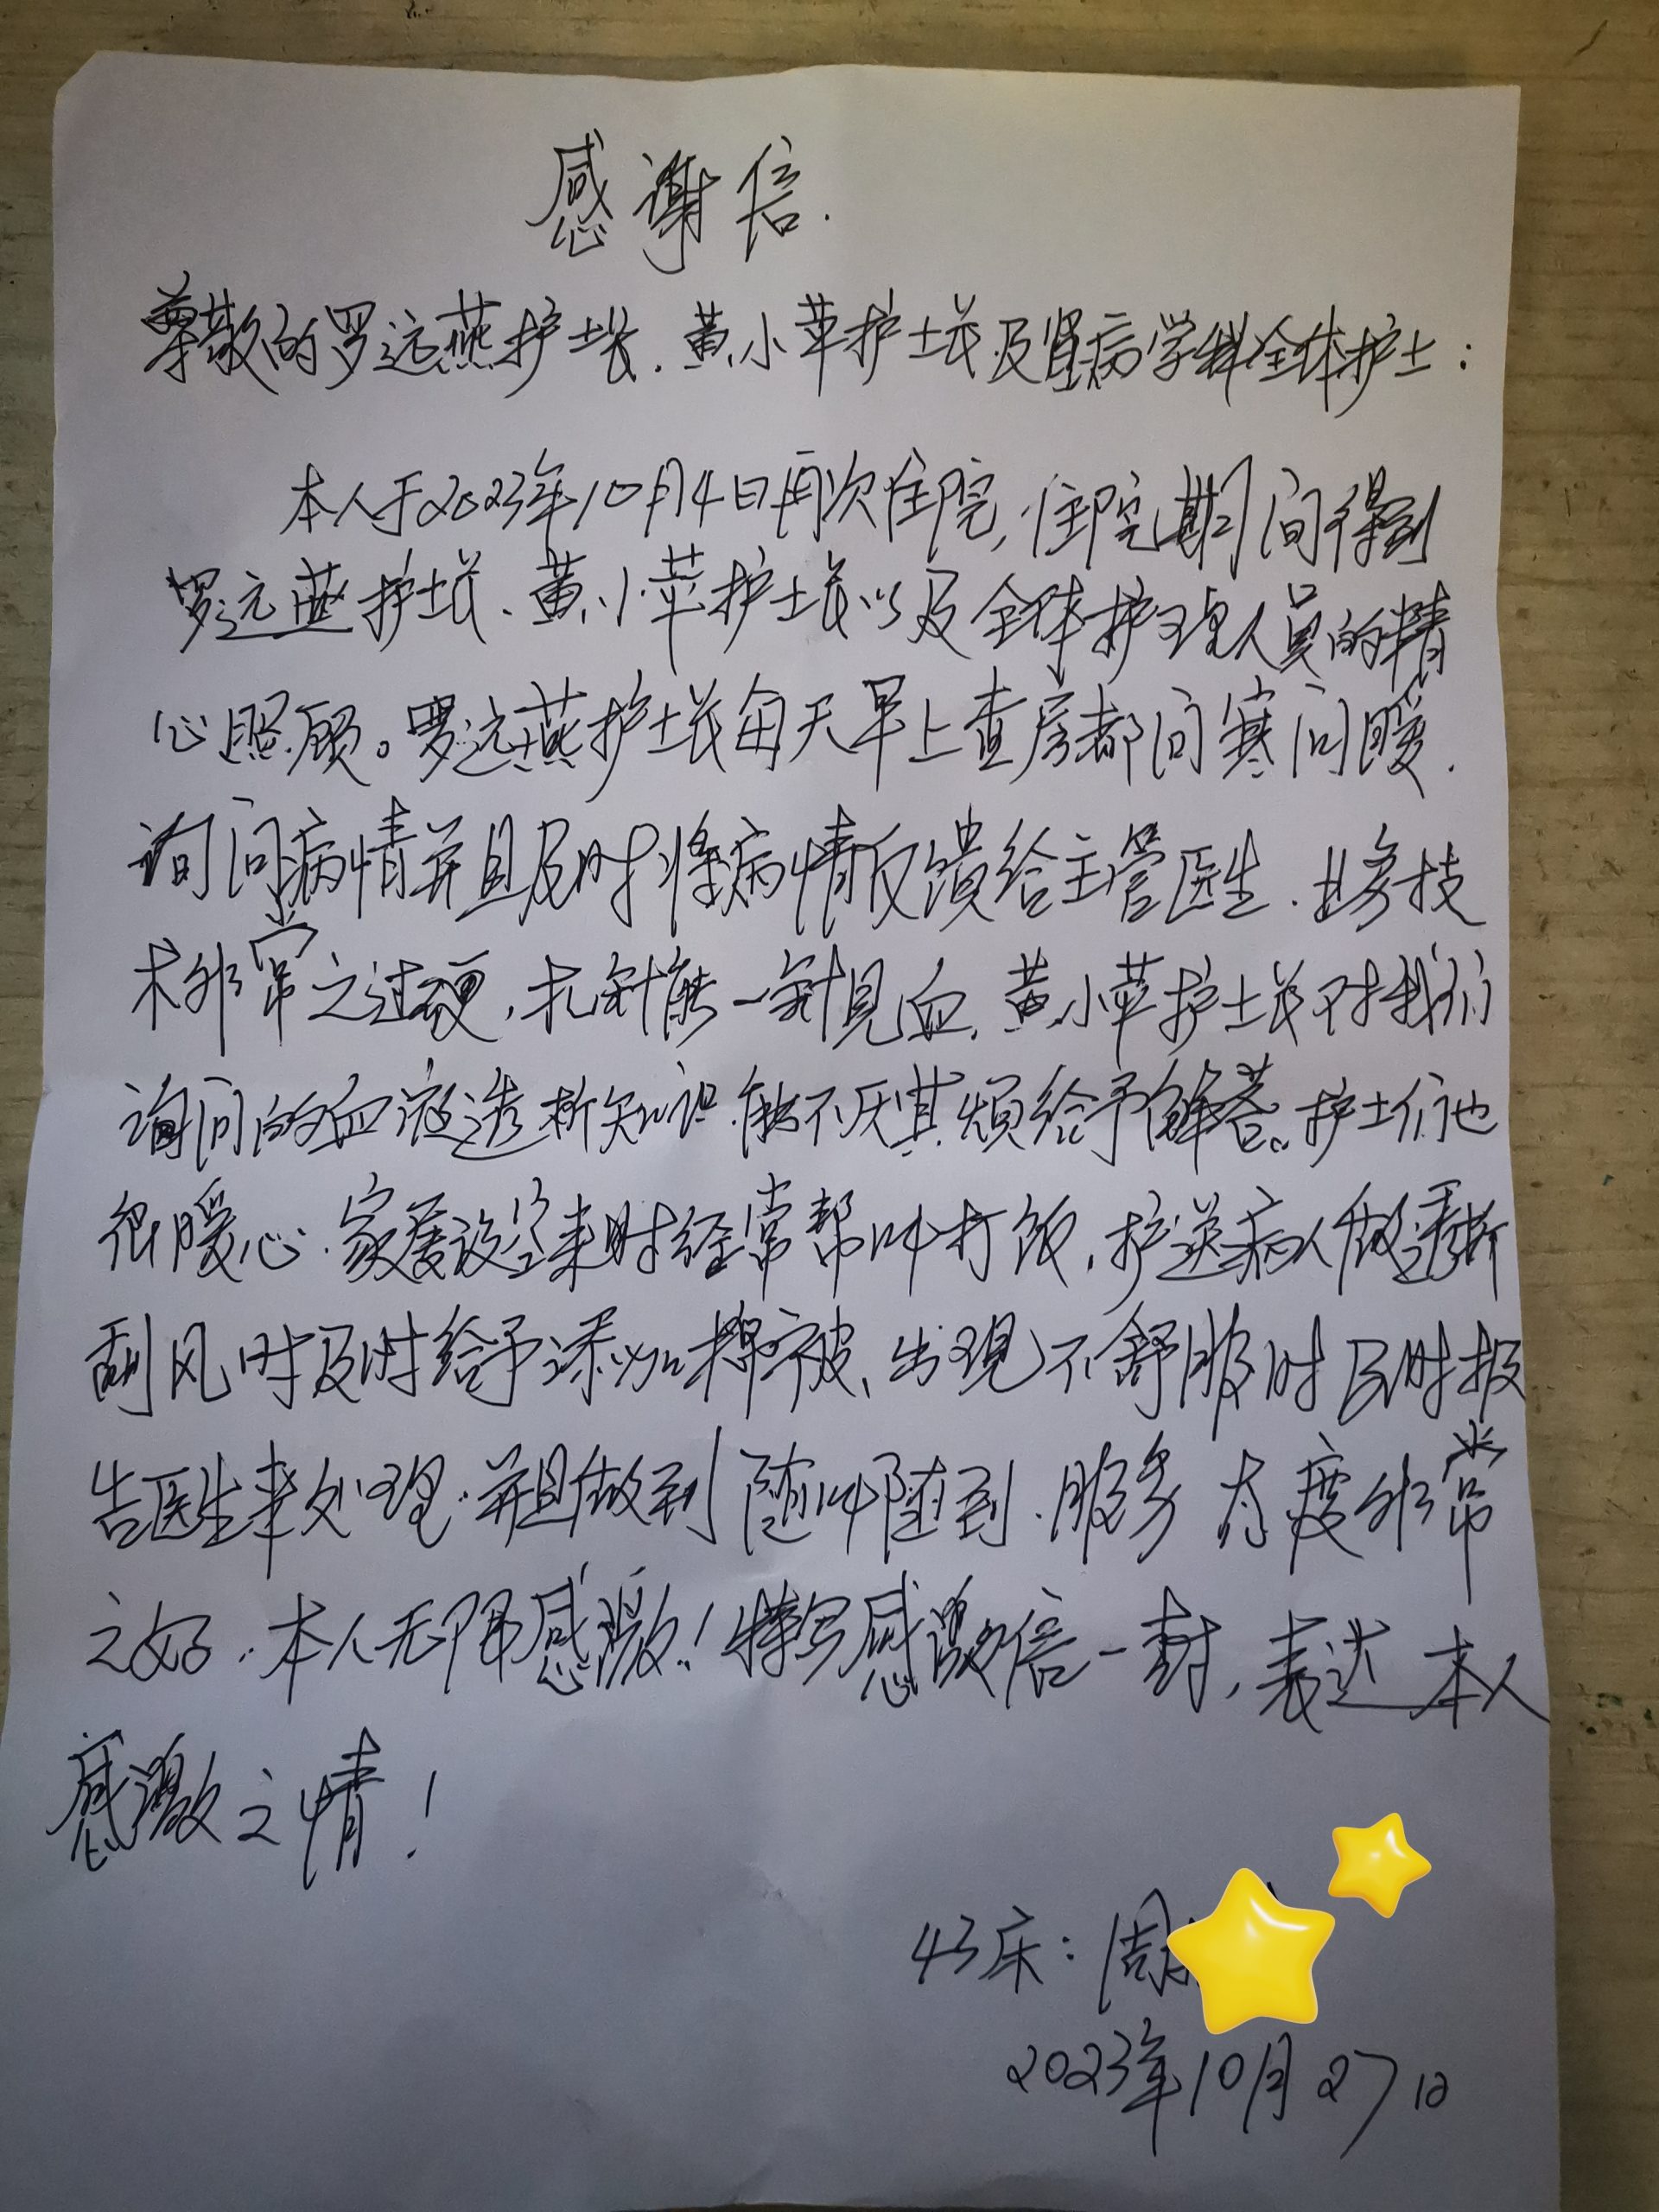 感谢信.
尊敬的罗远燕护士长.黄小苹护士长及肾病学科全体护士:
本人于2023年10月4日再次住院,住院期间得到
罗远燕护士长、黄小苹护士长以及全体护理人员的精
心照顾。罗远燕护士长每天早上查房都问寒问暖.
询问病情并且及时将病情反馈给主管医生.业务技
术非常之过硬,扎针能一针见血.黄小苹护士长对我们
询问的血液透析知识.能不厌其烦给予解答。护士们也
很暖心.家属没空来时经常帮叫打饭,护送病人做透析
刮风时及时给予添加棉被、出现不舒服时及时报
告医生来处理.并且做到随叫随到.服务态度非常
之好.本人无限感激!特写感激信一封,表达本人
感激之情!
43床:周
2023年10月27日